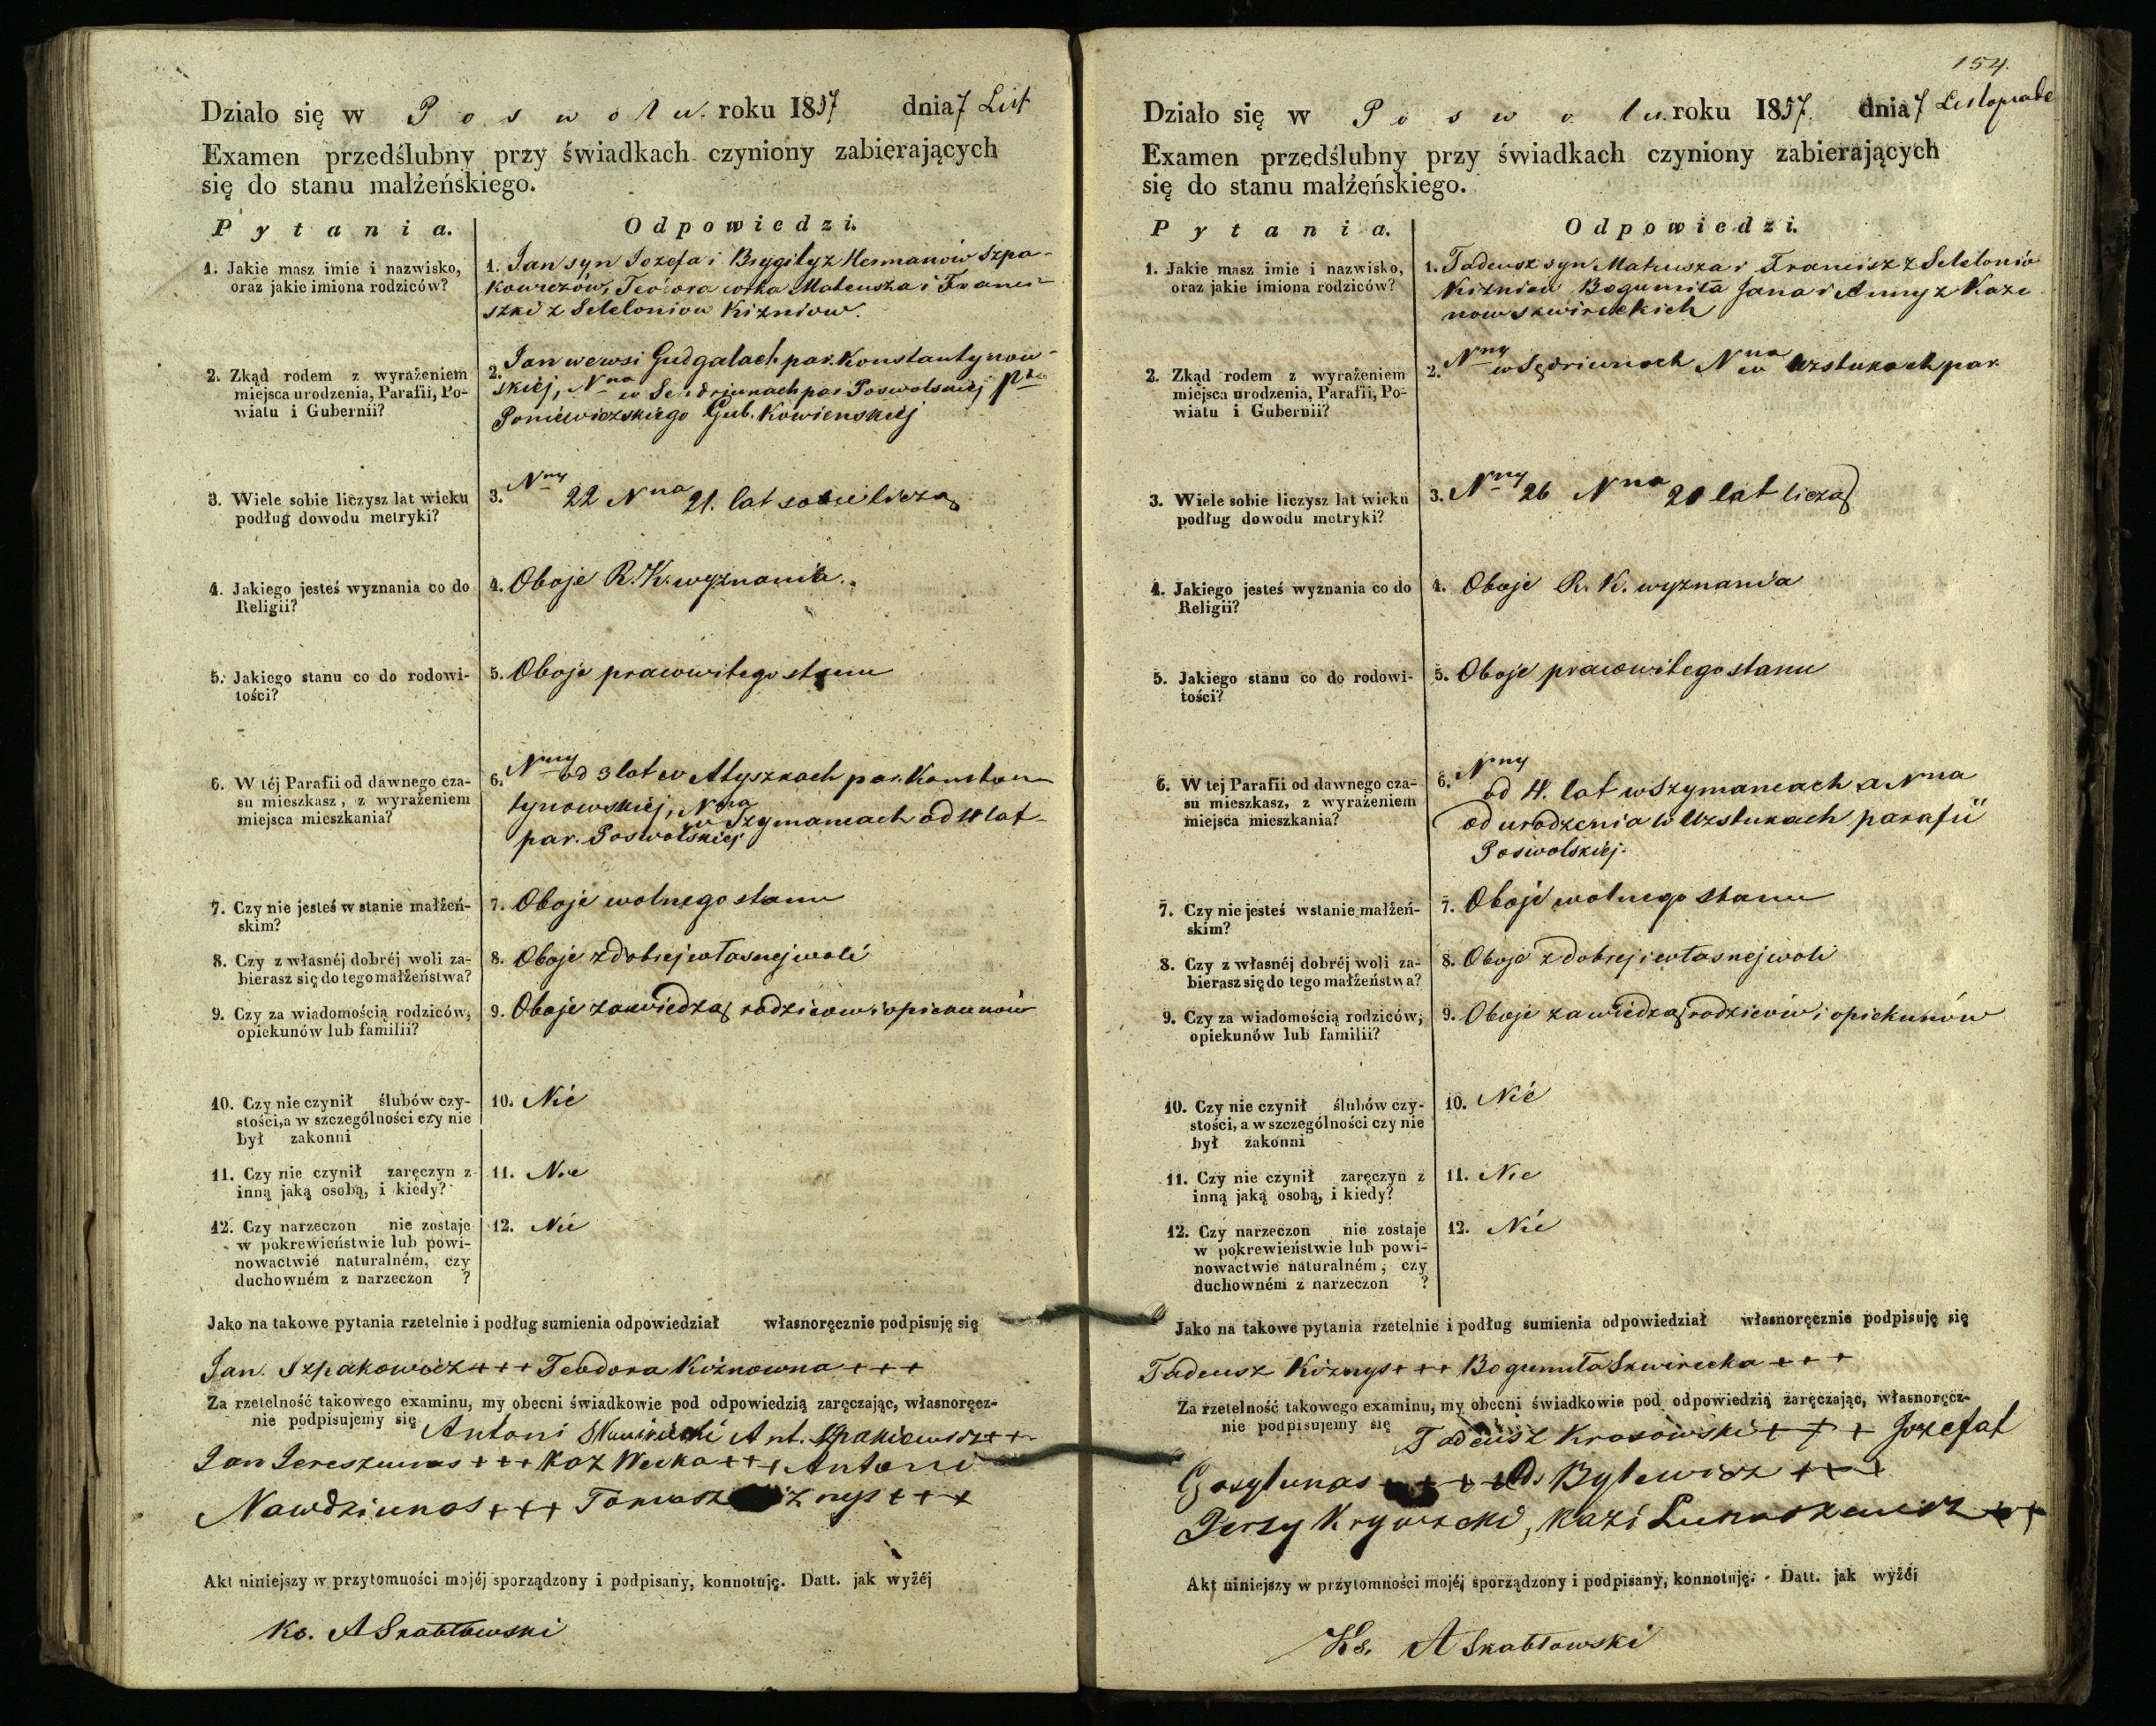 Działo się w Poswolu. roku 1857 dnia 7 List
Examen przedślubny przy świadkach czyniony zabierających
się do stanu małżeńskiego.
Pytania.
Odpowiedzi.
1. Jakie masz imie i nazwisko,
oraz jakie imiona rodziców?
1. Jan syn Jozefa i Brygity z Hermanów Szpa-
kowiczów, Teodora corka Mateusza i Franci-
szki z Seleloniow Kiżniow.
2. Zkąd rodem z wyrażeniem
miejsca urodzenia, Parafii, Po-
wiatu i Gubernii?
2. Jan we wsi Gudgalach par. Konstantynow-
skiej, Nna w Sendriunach par. Poswolskiej Ptu
Poniewiezskiego Gub. Kowienskiej
3. Wiele sobie liczysz lat wieku
podług dowodu metryki?
3. Nny 22 Nna 21. lat sobie liczą
4. Jakiego jesteś wyznania co do
Religii?
4. Oboje R. K. wyznania.
5. Jakiego stanu co do rodowi-
tości?
5. Oboje pracowitego stanu
6. W téj Parafii od dawnego cza-
su mieszkasz, z wyrażeniem
miejsca mieszkania?
6. Nny od 3 lat w Atyszkach par. Konstan
tynowskiej, Nna w Szymancach od 4 lat
par. Poswolskiej
7. Czy nie jesteś w stanie małżeń-
skim?
7. Oboje wolnego stanu
8. Czy z własnéj dobréj woli za-
bierasz się do tego małżeństwa?
8. Oboje z dobrej własnej woli
9. Czy za wiadomością rodziców,
opiekunów lub familii?
9. Oboje za wiedzą rodzicow i opiekunow
10. Czy nie czynił ślubów czy-
stości, a w szczególności czy nie
był zakonni
10. Nie
11. Czy nie czynił zaręczyn z
inną jaką osobą, i kiedy?
11. Nie
12. Czy narzeczon nie zostaje
w pokrewieństwie lub powi-
nowactwie naturalném, czy
duchowném z narzeczon ?
12. Nie
Jako na takowe pytania rzetelnie i podług sumienia odpowiedział własnoręcznie podpisuję się
Jan. Szpakowicz +++ Teodora Kiżnowna +++
Za rzetelność takowego examinu, my obecni świadkowie pod odpowiedzią zaręczając, własnoręcz-
nie podpisujemy się Antoni Skwirecki Ant. Szpakiewicz ++
Jan Jereszunas +++ Kaz Weska +++ Antoni
Nawdziunas +++ Tomasz +++
Akt niniejszy w przytomności mojéj sporządzony i podpisany, konnotuję. Datt. jak wyżéj
Ks. A Skabłowski
154.
Działo się w Poswolu. roku 1857. dnia 7 Listopada
Examen przedślubny przy świadkach czyniony zabierających
się do stanu małżeńskiego.
Pytania.
Odpowiedzi.
1. Jakie masz imie i nazwisko,
oraz jakie imiona rodziców?
1. Tadeusz syn Mateusza i Francisz z Seleloniów
Kiżniow Bogumiła Jana i Anny z Kaze
now Skwireckich
2. Zkąd rodem z wyrażeniem
miejsca urodzenia, Parafii, Po-
wiatu i Gubernii?
2. Nny w Sędriunach Nna w Uzstukach par.
3. Wiele sobie liczysz lat wieku
podług dowodu metryki?
3. Nny 26 Nna 20 lat liczą
4. Jakiego jesteś wyznania co do
Religii?
4. Oboje R. K. wyznania
5. Jakiego stanu co do rodowi-
tości?
5. Oboje pracowitego stanu
6. W tej Parafii od dawnego cza-
su mieszkasz, z wyrażeniem
miejsca mieszkania?
6. Nny od 4. lat w Szymancach a Nna
od urodzenia w Uzstukach parafii
Poswolskiej.
7. Czy nie jesteś wstanie małżeń-
skim?
7. Oboje wolnego stanu
8. Czy z własnéj dobréj woli za-
bierasz się do tego małżeństwa?
8. Oboje z dobrej i własnej woli
9. Czy za wiadomością rodziców,
opiekunów lub familii?
9. Oboje za wiedzą rodziców i opiekunów
10. Czy nie czynił ślubów czy-
stości, a w szczególności czy nie
był zakonni
10. Nie
11. Czy nie czynił zaręczyn z
inną jaką osobą, i kiedy?
11. Nie
12. Czy narzeczon nie zostaje
w pokrewieństwie lub powi-
nowactwie naturalném, czy
duchowném z narzeczon ?
12. Nie
Jako na takowe pytania rzetelnie i podług sumienia odpowiedział własnoręcznie podpisuję się
Tadeusz Kiżnys +++ Bogumiła Skwirecka +++
Za rzetelność takowego examinu, my obecni świadkowie pod odpowiedzią zaręczając, własnoręcz-
nie podpisujemy się Tadeusz Krasowski +++ Jozefat
Bytewicz +++
Jerzy Krywicki, Kazi Lukaszewicz ++
Akt niniejszy w przytomności mojéj sporządzony i podpisany, konnotuję. Datt. jak wyżéj
Ks. A Skabłowski